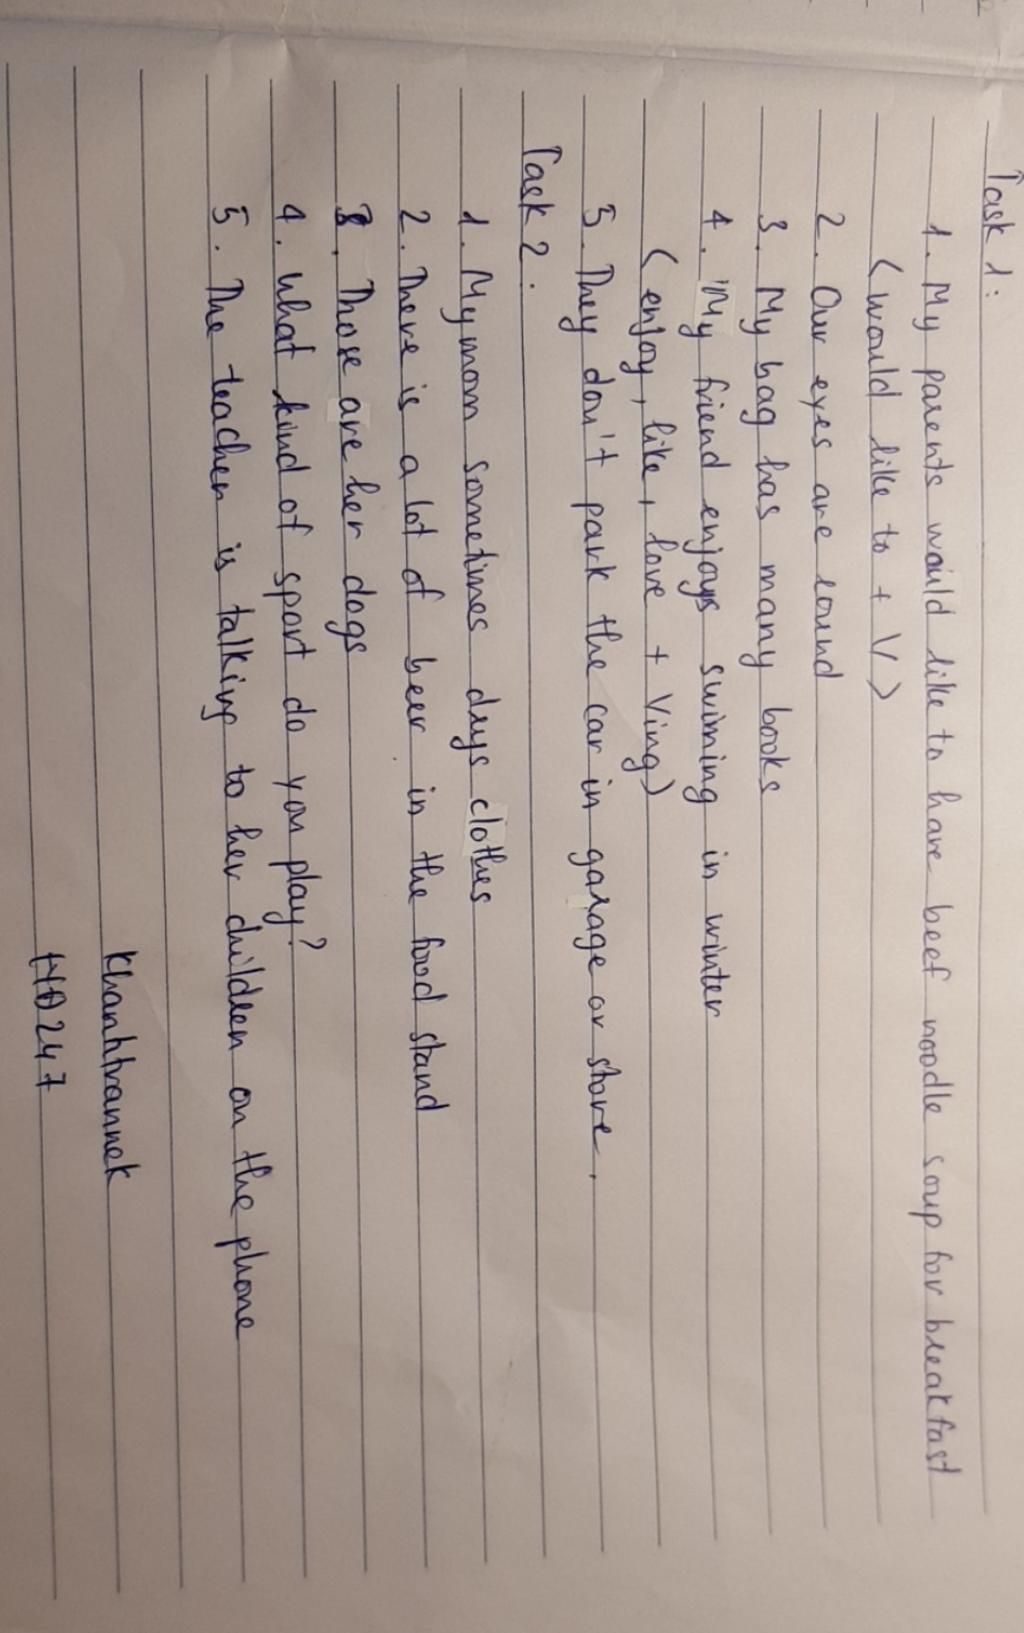 Task 1:
1. My parents would like to have beef noodle soup for breakfast
(would like to + V)
2. Our eyes are round
3. My bag has many books
4. My friend enjoys swiming in winter
(enjoy, like, love + Ving)
5. They don't park the car in garage or store.
Task 2.
1. My mom sometimes drys clothes
2. There is a lot of beer in the food stand
3. Those are her dogs
4. What kind of sport do you play?
5. The teacher is talking to her children on the phone
Khanhtrannek